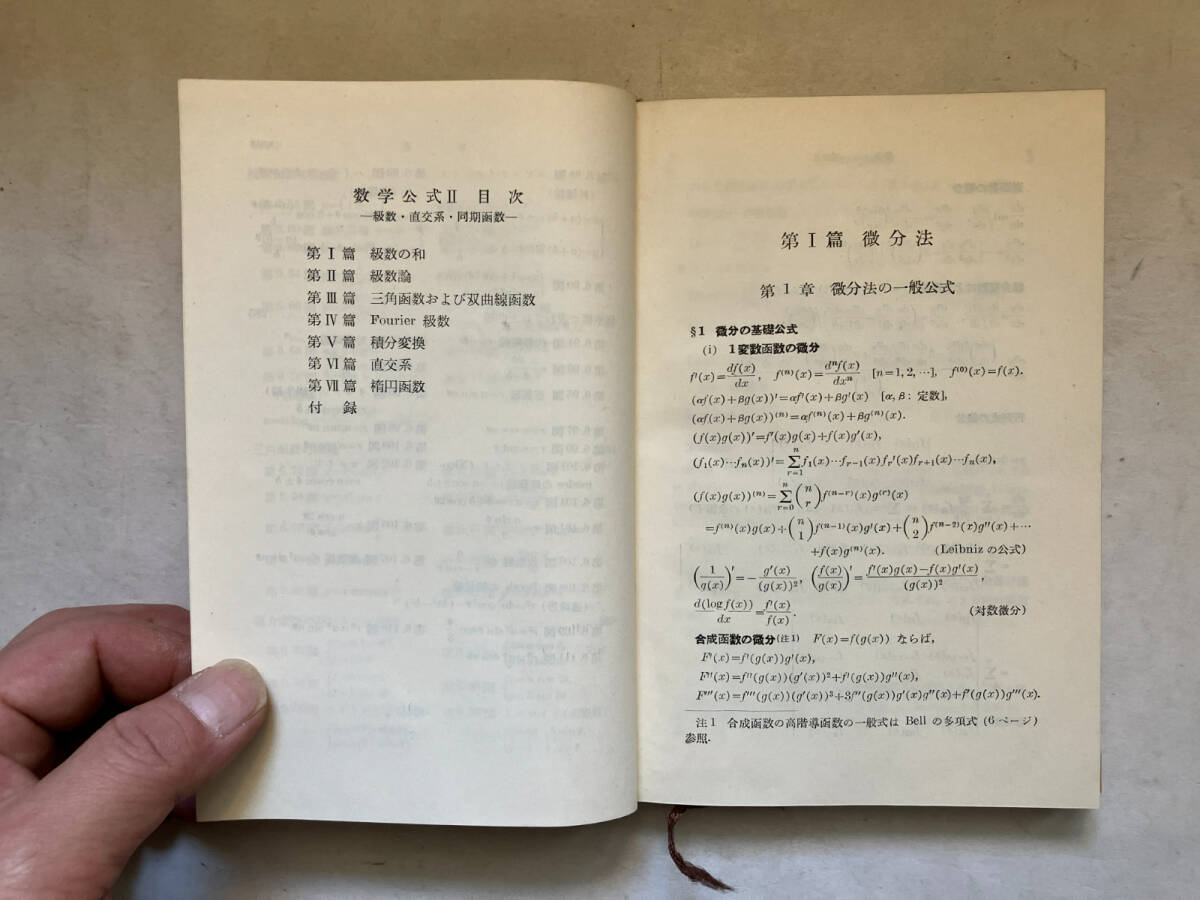 数学公式Ⅱ 目次
―級数・直交系・同期函数―
第Ⅰ篇 級数の和
第Ⅱ篇 級数論
第Ⅲ篇 三角函数および双曲線函数
第Ⅳ篇 Fourier 級数
第Ⅴ篇 積分変換
第Ⅵ篇 直交系
第Ⅶ篇 楕円函数
付録
第Ⅰ篇 微分法
第1章 微分法の一般公式
§1 微分の基礎公式
(i) 1変数函数の微分
f′(x)=df(x)/dx, f⁽ⁿ⁾(x)=dⁿf(x)/dxⁿ [n=1, 2, …], f⁽⁰⁾(x)=f(x).
(αf(x)+βg(x))′=αf′(x)+βg′(x) [α, β: 定数],
(αf(x)+βg(x))⁽ⁿ⁾=αf⁽ⁿ⁾(x)+βg⁽ⁿ⁾(x).
(f(x)g(x))′=f′(x)g(x)+f(x)g′(x),
(f₁(x)⋯fₙ(x))′=∑_{r=1}^{n} f₁(x)⋯f_{r−1}(x)f_r′(x)f_{r+1}(x)⋯fₙ(x),
(f(x)g(x))⁽ⁿ⁾=∑_{r=0}^{n} (n r) f⁽ⁿ⁻ʳ⁾(x)g⁽ʳ⁾(x)
=f⁽ⁿ⁾(x)g(x)+(n 1)f⁽ⁿ⁻¹⁾(x)g′(x)+(n 2)f⁽ⁿ⁻²⁾(x)g″(x)+⋯
+f(x)g⁽ⁿ⁾(x). (Leibniz の公式)
(1/g(x))′=−g′(x)/(g(x))², (f(x)/g(x))′=(f′(x)g(x)−f(x)g′(x))/(g(x))²,
d(log f(x))/dx=f′(x)/f(x). (対数微分)
合成函数の微分(注1) F(x)=f(g(x)) ならば,
F′(x)=f′(g(x))g′(x),
F″(x)=f″(g(x))(g′(x))²+f′(g(x))g″(x),
F‴(x)=f‴(g(x))(g′(x))²+3f″(g(x))g′(x)g″(x)+f′(g(x))g‴(x).
注1 合成函数の高階導函数の一般式は Bell の多項式 (6ページ)
参照.